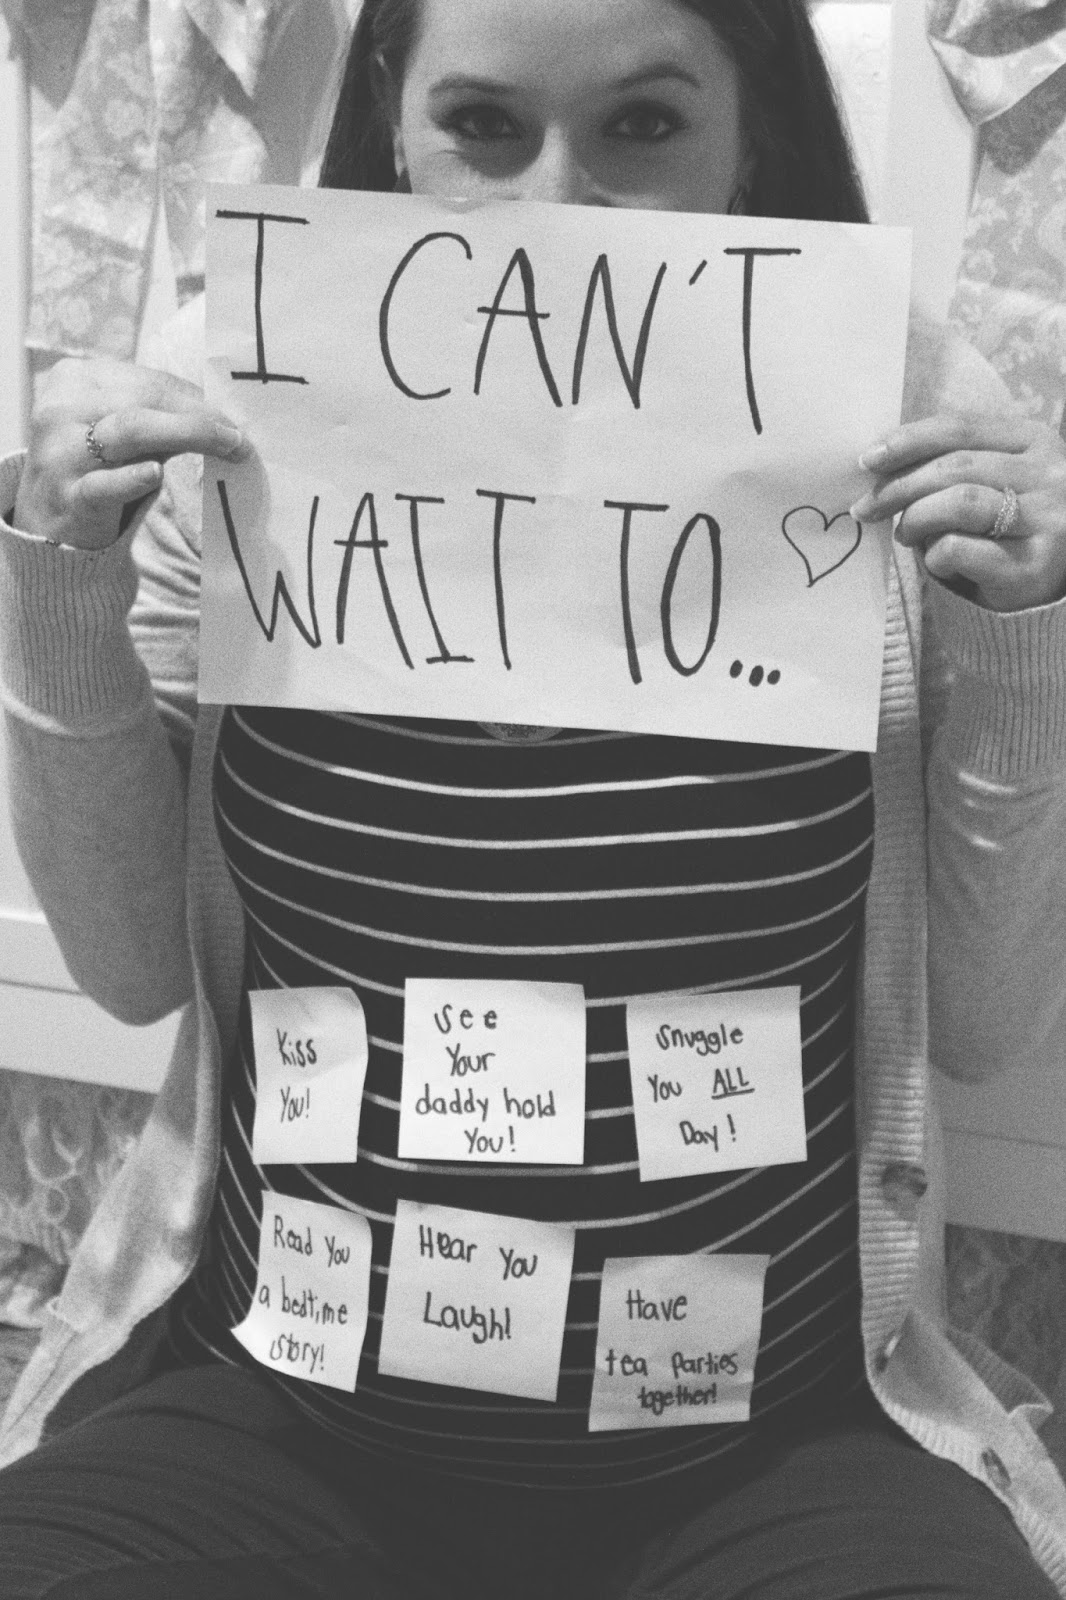 I CAN'T
WAIT TO...
Kiss
You!
See
Your
daddy hold
You!
Snuggle
You ALL
Day!
Read You
a bedtime
Story!
Hear You
Laugh!
Have
tea Parties
together!